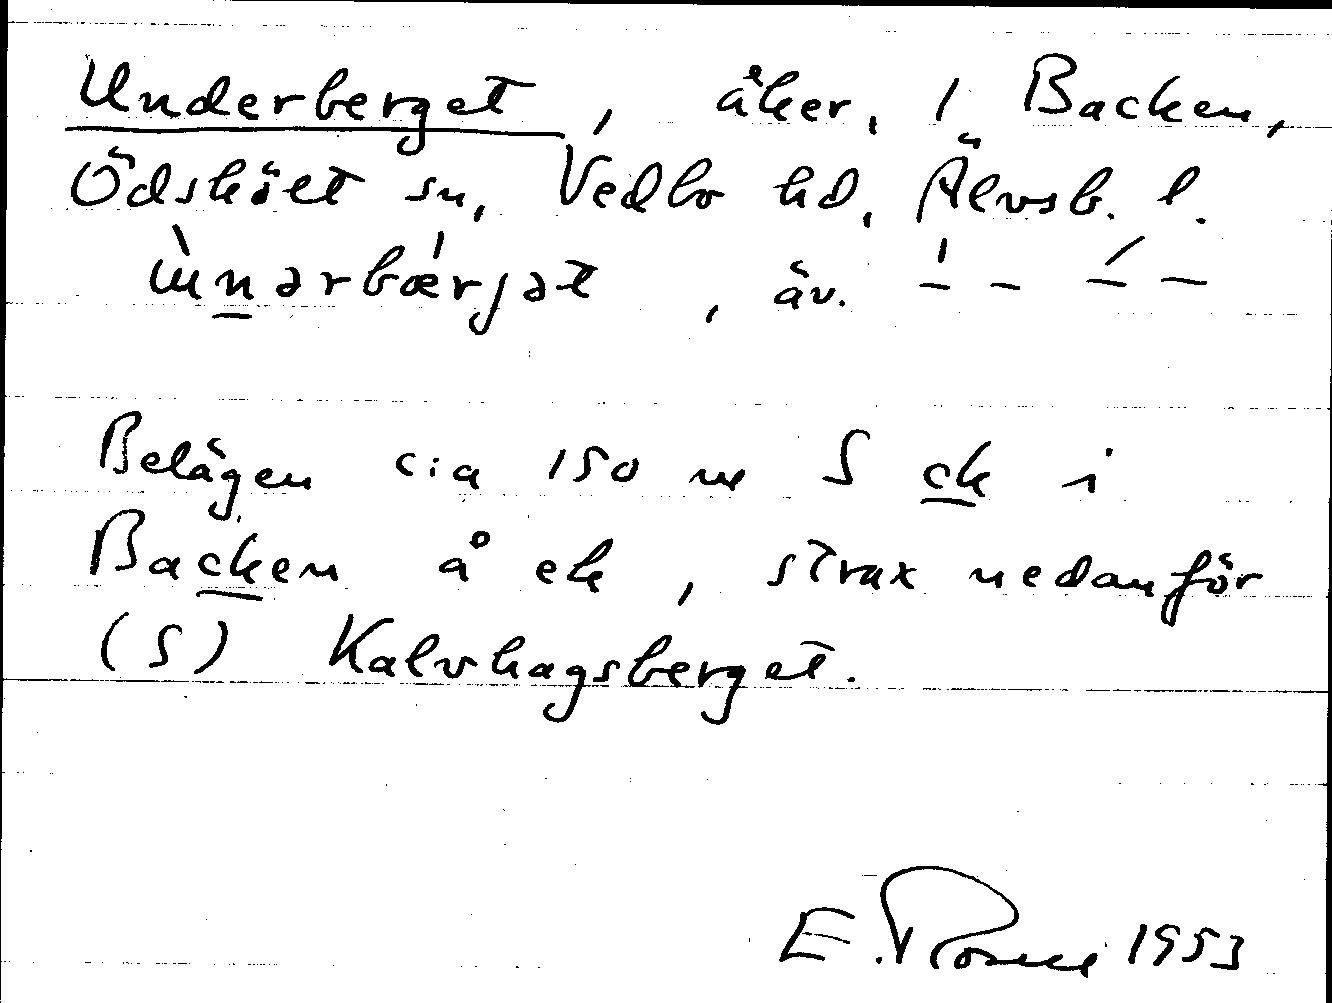 Underberget, åker, 1 Backen,
Ödskölt sn, Vedbo hd, Älvsb. l.
ɯ̀nərbǽrjət, äv. –́ – –́ –
Belägen c:a 150 m S ck i
Backen å ek, strax nedanför
(S) Kalvhagsberget.
E. 1953